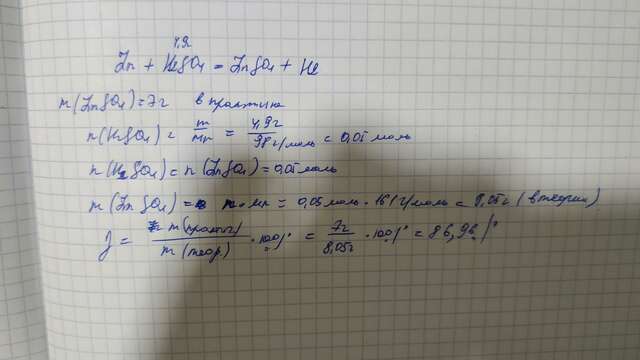 4,9
Zn + H2SO4 = ZnSO4 + H2
m(ZnSO4) = 7г в практике
n(H2SO4) = m/Mr = 4,9г/98г/моль = 0,05 моль
n(H2SO4) = n(ZnSO4) = 0,05 моль
m(ZnSO4) = n · Mr = 0,05 моль · 161 г/моль = 8,05г (в теории)
η = m(практ)/m(теор.) · 100% = 7г/8,05г · 100% = 86,96%